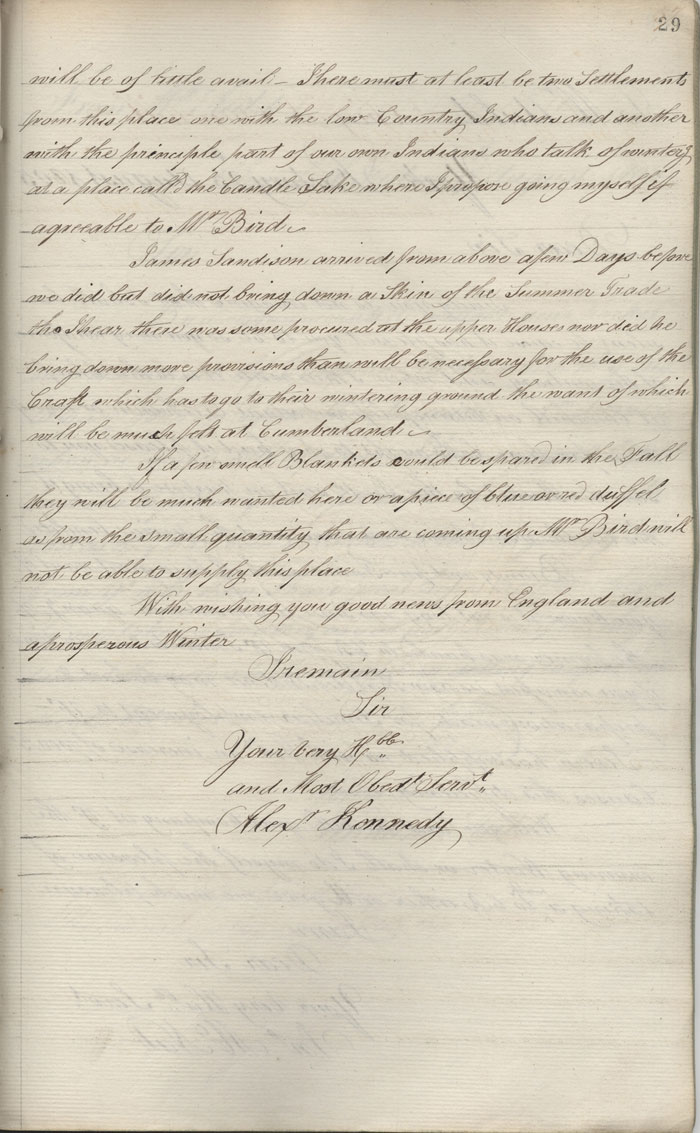 29
will be of little avail – There must at least be two Settlements
from this place one with the low Country Indians and another
with the principle part of our own Indians who talk of winterg
at a place call'd the Candle Lake where I propose going myself if
agreeable to Mr Bird
James Sandison arrived from above a few Days before
we did but did not bring down a Skin of the Summer Trade
tho I hear there was some procured at the upper Houses nor did he
bring down more provisions than will be necessary for the use of the
Craft which has to go to their wintering ground the want of which
will be much felt at Cumberland
If a few small Blankets could be spared in the Fall
they will be much wanted here or a piece of blue or red duffel
as from the small quantity that are coming up Mr Bird will
not be able to supply this place
With wishing you good news from England and
a prosperous Winter
I remain
Sir
Your very Hbb
and Most Obedt Servt
Alexr Kennedy